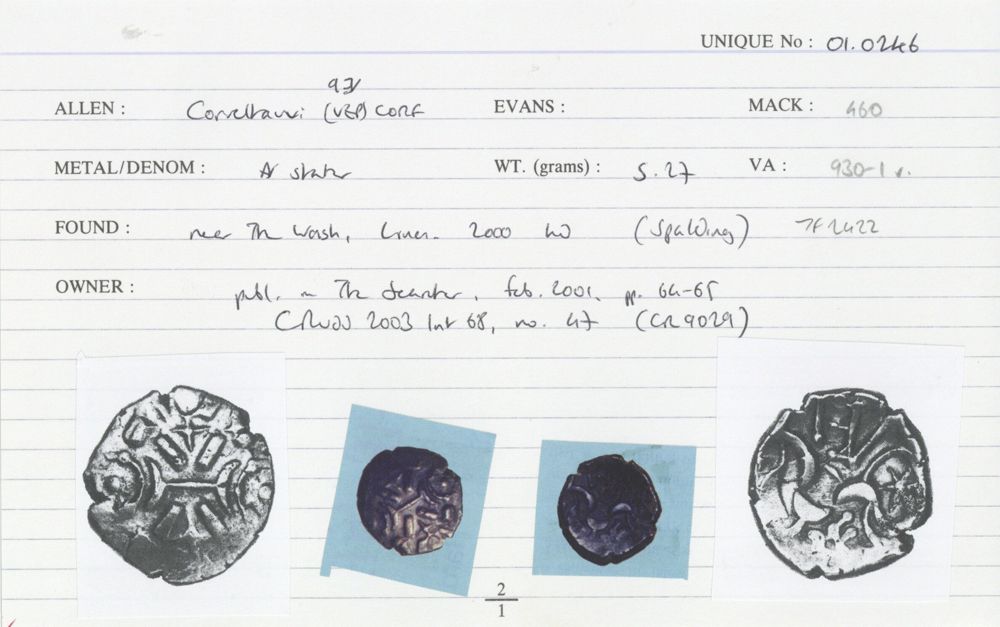 UNIQUE No : 01.0246
ALLEN : Corieltauvi (VEP) CORF EVANS : MACK : 460
METAL/DENOM : AV stater WT. (grams) : 5.27 VA : 930-1
FOUND : near The Wash, Lincs. 2000 (Spalding)
OWNER :
publ. in The Searcher, feb. 2001, pp. 64-65
2003 68, no. 47 (CR9029)
2
1